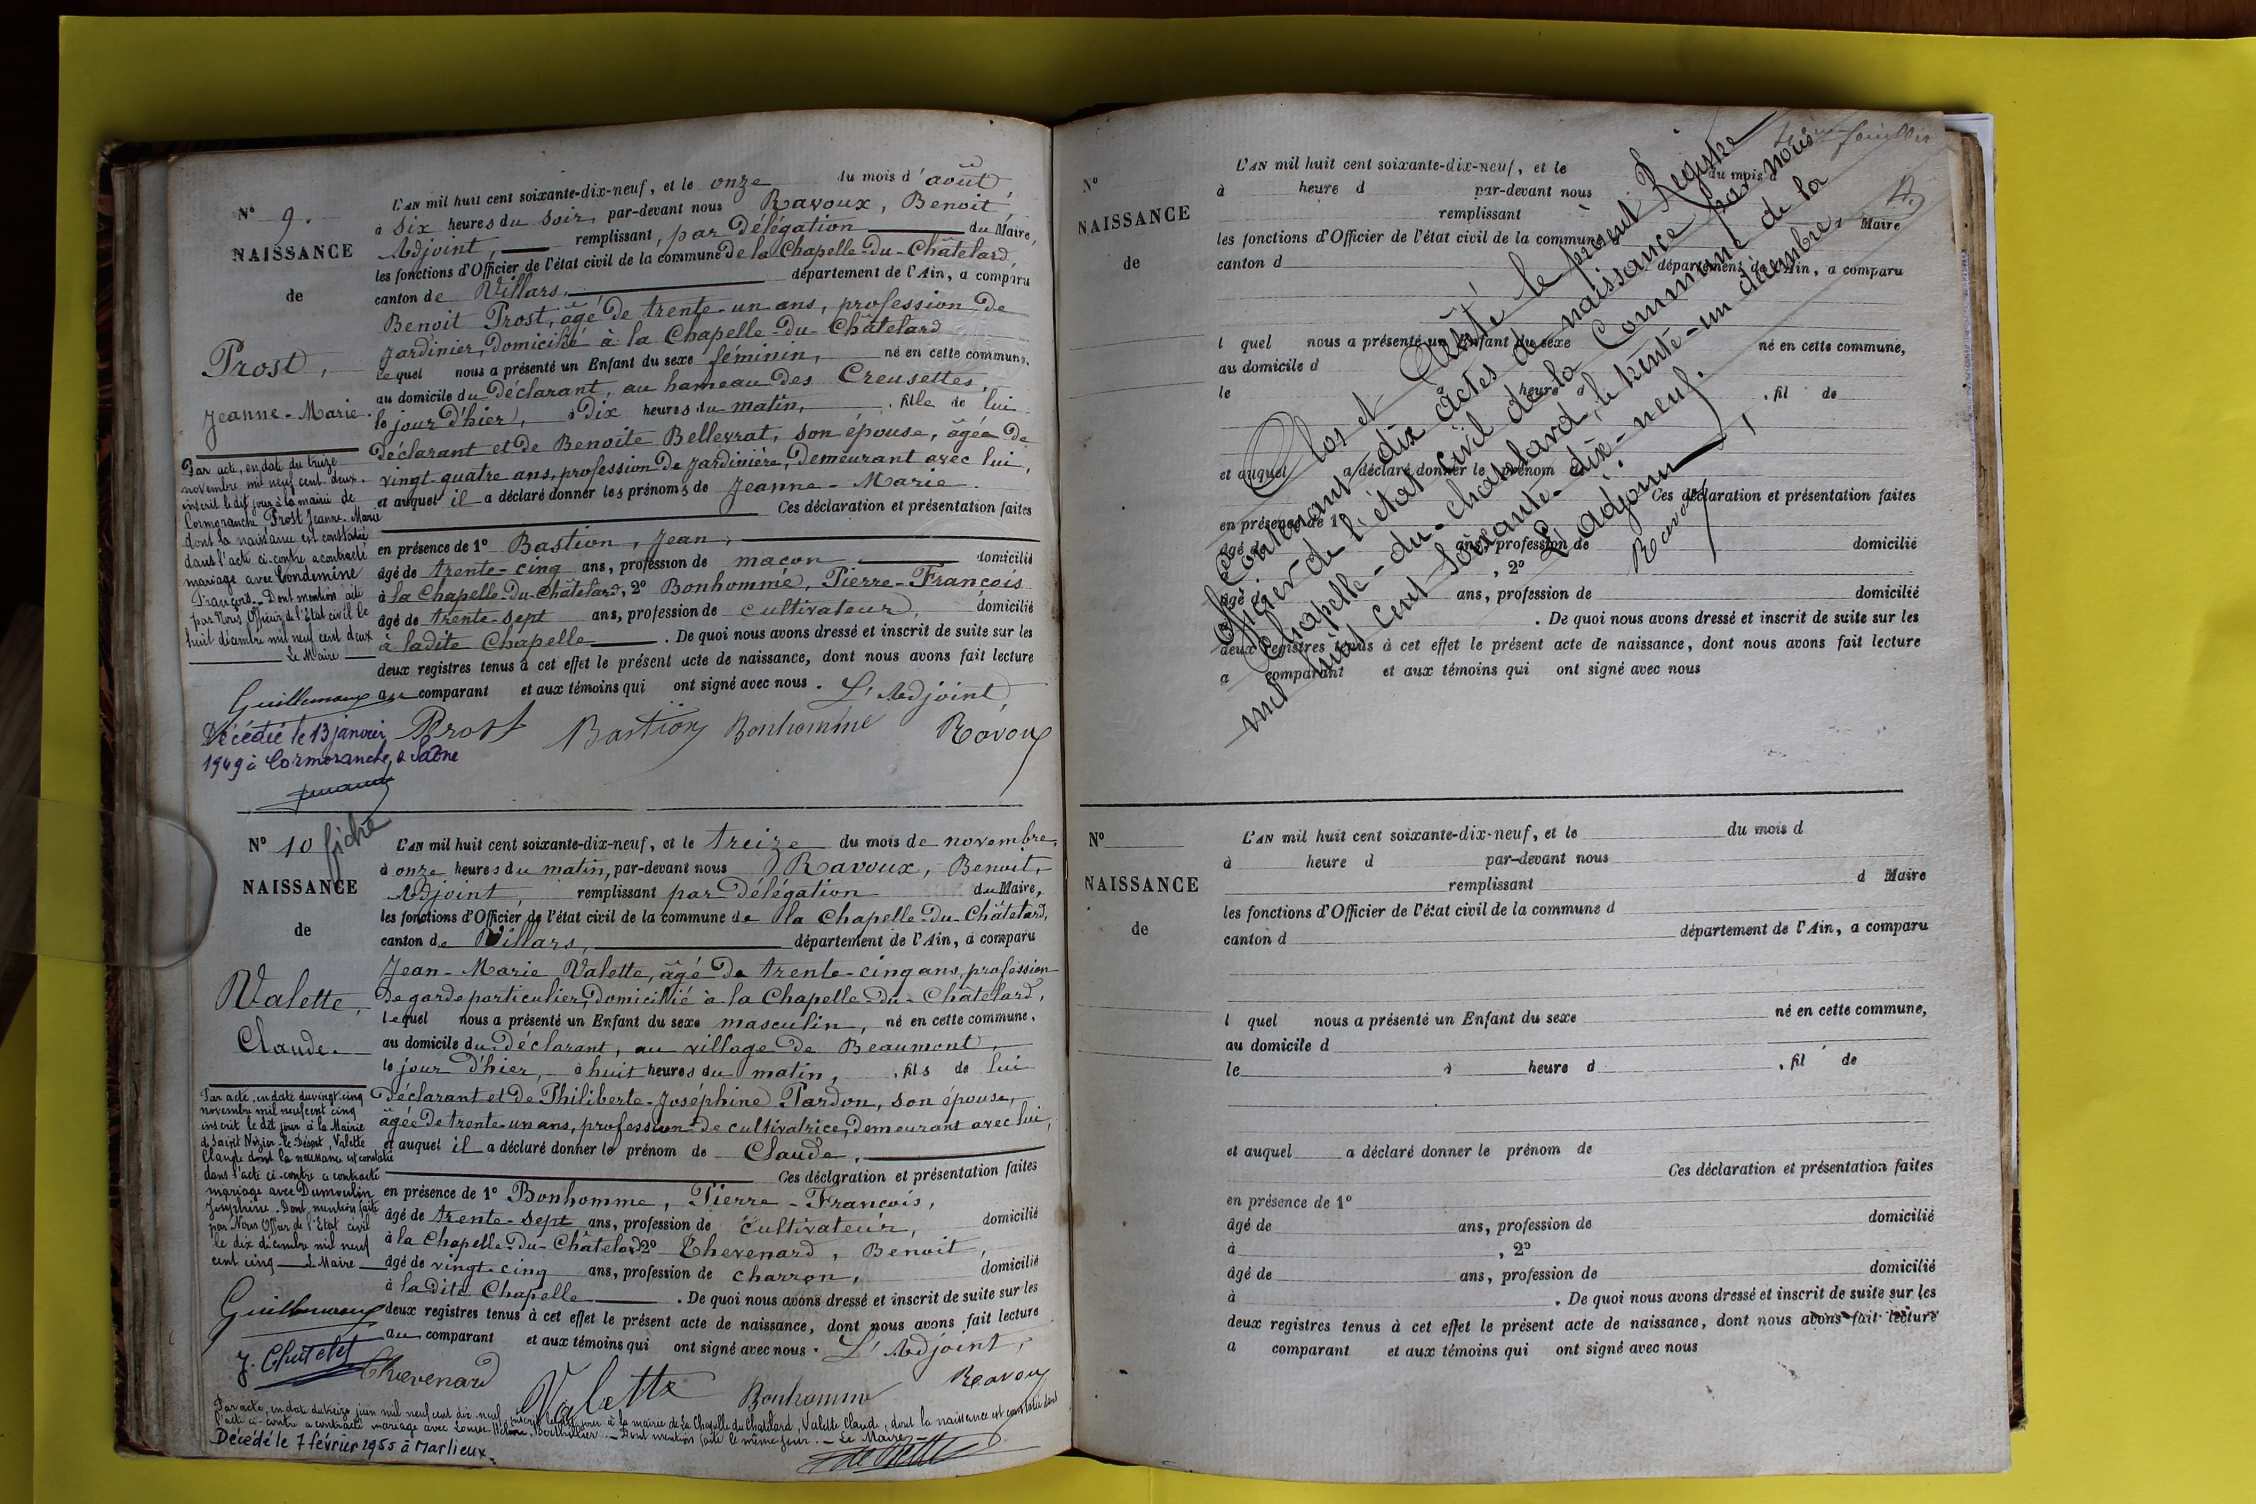 N° 9.
NAISSANCE
de
Prost,
Jeanne-Marie.
Par acte, en date du treize
novembre mil neuf cent deux
inscrit le dit jour à la mairie de
Cormoranche Prost Jeanne-Marie
dont la naissance est constatée
dans l'acte ci-contre a contracté
mariage avec Condemine
François. Dont mention faite
par Nous Officier de l'Etat civil le
huit décembre mil neuf cent deux
Le Maire
Guillemaux
Décédée le 13 janvier
1949 à Cormoranche s Saône
L'AN mil huit cent soixante-dix-neuf, et le onze du mois d'août,
à six heures du soir, par-devant nous Ravoux, Benoit
Adjoint, remplissant, par Délégation du Maire,
les fonctions d'Officier de l'état civil de la commune de la Chapelle-du-Châtelard,
canton de Villars, département de l'Ain, a comparu
Benoit Prost, âgé de trente-un ans, profession de
jardinier, domicilié à la Chapelle-du-Châtelard
lequel nous a présenté un Enfant du sexe féminin, né en cette commune,
au domicile du déclarant, au hameau des Creusettes,
le jour d'hier, à dix heures du matin, fille de lui
déclarant et de Benoite Bellevrat, son épouse, âgée de
vingt-quatre ans, profession de jardinière, demeurant avec lui,
et auquel il a déclaré donner les prénoms de Jeanne-Marie.
Ces déclaration et présentation faites
en présence de 1° Bastion, Jean,
âgé de trente-cinq ans, profession de maçon domicilié
à la Chapelle-du-Châtelard, 2° Bonhomme, Pierre-François
âgé de trente-sept ans, profession de cultivateur, domicilié
à ladite Chapelle. De quoi nous avons dressé et inscrit de suite sur les
deux registres tenus à cet effet le présent acte de naissance, dont nous avons fait lecture
au comparant et aux témoins qui ont signé avec nous. L'Adjoint,
Prost Bastion Bonhomme Ravoux
N° 10 fiche
NAISSANCE
de
Valette,
Claude.
Par acte, en date du vingt-cinq
novembre mil neuf cent cinq
inscrit le dit jour à la Mairie
de Saint Nizier-le-Désert Valette
Claude dont la naissance est constatée
dans l'acte ci-contre a contracté
mariage avec Dumoulin
Joséphine. Dont mention faite
par Nous Officier de l'Etat civil
le dix décembre mil neuf
cent cinq Le Maire
Guillemaux
L'AN mil huit cent soixante-dix-neuf, et le treize du mois de novembre,
à onze heures du matin, par-devant nous Ravoux, Benoit,
Adjoint, remplissant par Délégation du Maire,
les fonctions d'Officier de l'état civil de la commune de la Chapelle-du-Châtelard,
canton de Villars, département de l'Ain, a comparu
Jean-Marie Valette, âgé de trente-cinq ans, profession
de garde particulier, domicilié à la Chapelle-du-Châtelard,
lequel nous a présenté un Enfant du sexe masculin, né en cette commune,
au domicile du déclarant, au village de Beaumont,
le jour d'hier, à huit heures du matin, fils de lui
déclarant et de Philiberte-Joséphine Pardon, son épouse,
âgée de trente-un ans, profession de cultivatrice, demeurant avec lui,
et auquel il a déclaré donner le prénom de Claude.
Ces déclaration et présentation faites
en présence de 1° Bonhomme, Pierre-François,
âgé de trente-sept ans, profession de cultivateur, domicilié
à la Chapelle-du-Châtelard 2° Thevenard, Benoit,
âgé de vingt-cinq ans, profession de charron, domicilié
à ladite Chapelle. De quoi nous avons dressé et inscrit de suite sur les
deux registres tenus à cet effet le présent acte de naissance, dont nous avons fait lecture
au comparant et aux témoins qui ont signé avec nous. L'Adjoint,
Thevenard Valette Bonhomme Ravoux
Par acte, en date du treize juin mil neuf cent dix-neuf inscrit le dit jour à la mairie de La Chapelle du Chatelard, Valette Claude, dont la naissance est constatée dans
l'acte ci-contre a contracté mariage avec Louise Berthillier. Dont mention faite le même jour. Le Maire
Décédé le 7 février 1955 à Marlieux.
N°
NAISSANCE
de
L'AN mil huit cent soixante-dix-neuf, et le du mois d
à heure d par-devant nous
remplissant Maire
les fonctions d'Officier de l'état civil de la commune
canton d département de l'Ain, a comparu
l quel nous a présenté un Enfant du sexe né en cette commune,
au domicile d
le à heure d , fil de
et auquel a déclaré donner le prénom de
Ces déclaration et présentation faites
en présence de 1°
âgé de ans, profession de domicilié
, 2°
âgé de ans, profession de domicilié
. De quoi nous avons dressé et inscrit de suite sur les
deux registres tenus à cet effet le présent acte de naissance, dont nous avons fait lecture
a comparant et aux témoins qui ont signé avec nous
Clos et arrêté le présent Registre
contenant dix actes de naissance par nous
Officier de l'état civil de la Commune de la
Chapelle-du-Chatelard, le trente-un décembre,
mil huit cent soixante-dix-neuf.
L'adjoint,
Ravoux
N°
NAISSANCE
de
L'AN mil huit cent soixante-dix-neuf, et le du mois d
à heure d par-devant nous
remplissant d Maire
les fonctions d'Officier de l'état civil de la commune d
canton d département de l'Ain, a comparu
l quel nous a présenté un Enfant du sexe né en cette commune,
au domicile d
le à heure d , fil de
et auquel a déclaré donner le prénom de
Ces déclaration et présentation faites
en présence de 1°
âgé de ans, profession de domicilié
à , 2°
âgé de ans, profession de domicilié
à . De quoi nous avons dressé et inscrit de suite sur les
deux registres tenus à cet effet le présent acte de naissance, dont nous avons fait lecture
a comparant et aux témoins qui ont signé avec nous